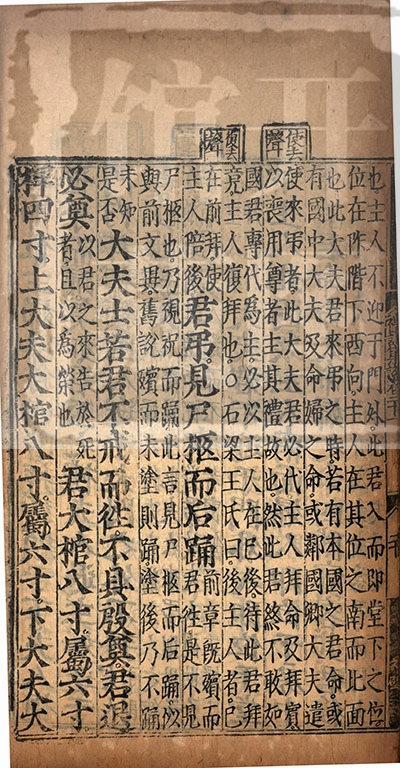 使去聲
復去聲
也主人不迎于門外此君入而即堂下之位
位在阼階下西向主人在其位之南而北面
也此大夫君來弔之時若有本國之君命或
有國中大夫及命婦之命或鄰國卿大夫遣
使來弔者此大夫君必代主人拜命及拜賓
以喪用尊者主其禮故也然此君終不敢如
國君專代爲主必以主人在己後待此君拜
竟主人復拜也○石梁王氏曰後主人者已
在前拜使主人陪後君弔見尸柩而后踊前章既殯而君往是不見
尸柩也乃視祝而踊此言見尸柩而后踊似
與前文異舊說殯而未塗則踊塗後乃不踊
未知是否大夫士若君不戒而往不具殷奠君退
必奠以君之來告於死者且以爲榮也君大棺八寸屬六寸
椑四寸上大夫大棺八寸屬六寸下大夫大